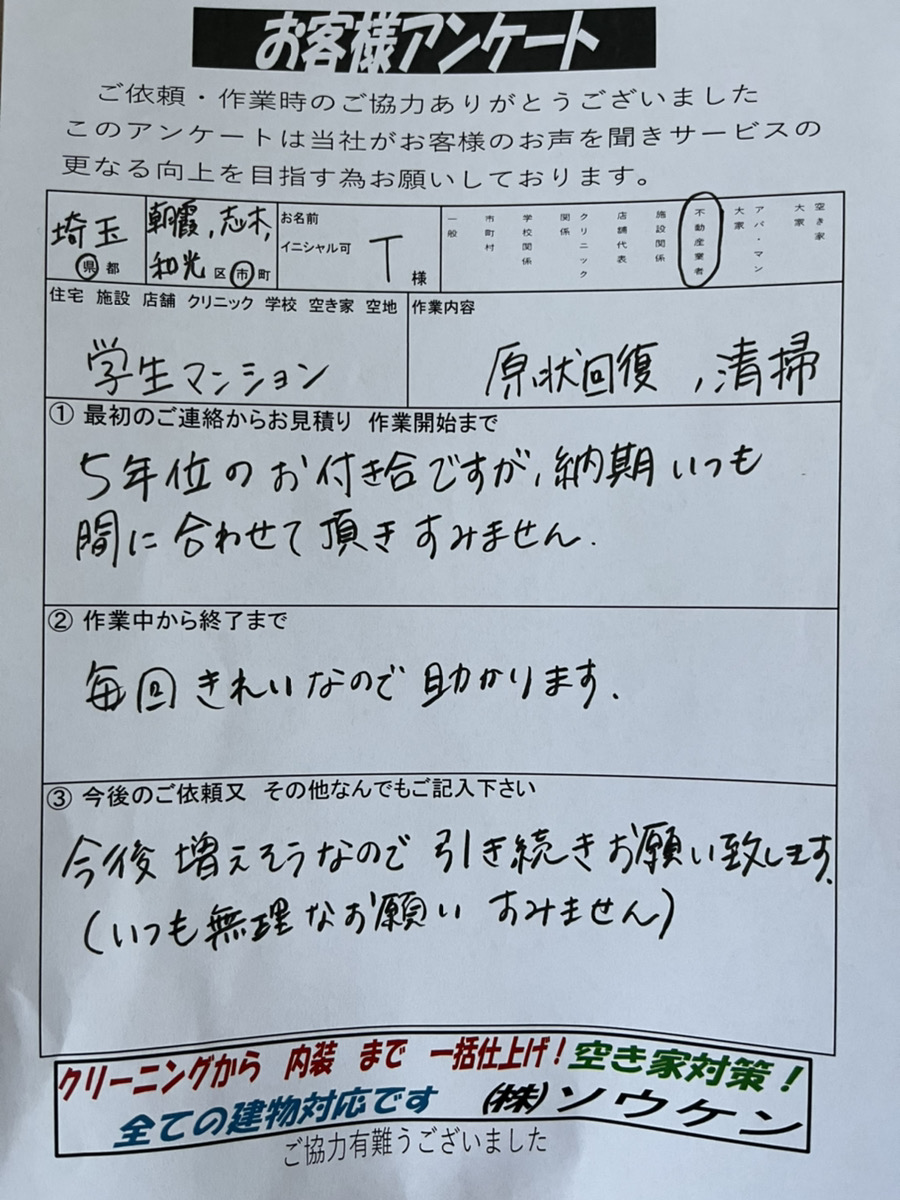 お客様アンケート
ご依頼・作業時のご協力ありがとうございました
このアンケートは当社がお客様のお声を聞きサービスの
更なる向上を目指す為お願いしております。
埼玉 県都
朝霞,志木,
和光 区市町
お名前
イニシャル可 T 様
一般
市町村
学校関係
クリニック関係
店舗代表
施設関係
不動産業者
アパ・マン大家
空き家大家
住宅 施設 店舗 クリニック 学校 空き家 空地
学生マンション
作業内容
原状回復,清掃
① 最初のご連絡からお見積り 作業開始まで
5年位のお付き合ですが,納期いつも
間に合わせて頂きすみません.
② 作業中から終了まで
毎回きれいなので助かります.
③ 今後のご依頼又 その他なんでもご記入下さい
今後増えそうなので引き続きお願い致します.
(いつも無理なお願いすみません)
クリーニングから 内装 まで 一括仕上げ!空き家対策!
全ての建物対応です (株)ソウケン
ご協力有難うございました